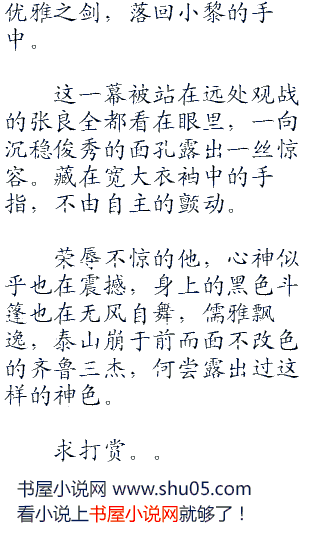 优雅之剑，落回小黎的手
中。
这一幕被站在远处观战
的张良全都看在眼里，一向
沉稳俊秀的面孔露出一丝惊
容。藏在宽大衣袖中的手
指，不由自主的颤动。
荣辱不惊的他，心神似
乎也在震撼，身上的黑色斗
篷也在无风自舞，儒雅飘
逸，泰山崩于前而面不改色
的齐鲁三杰，何尝露出过这
样的神色。
求打赏。。
书屋小说网 www.shu05.com
看小说上书屋小说网就够了！